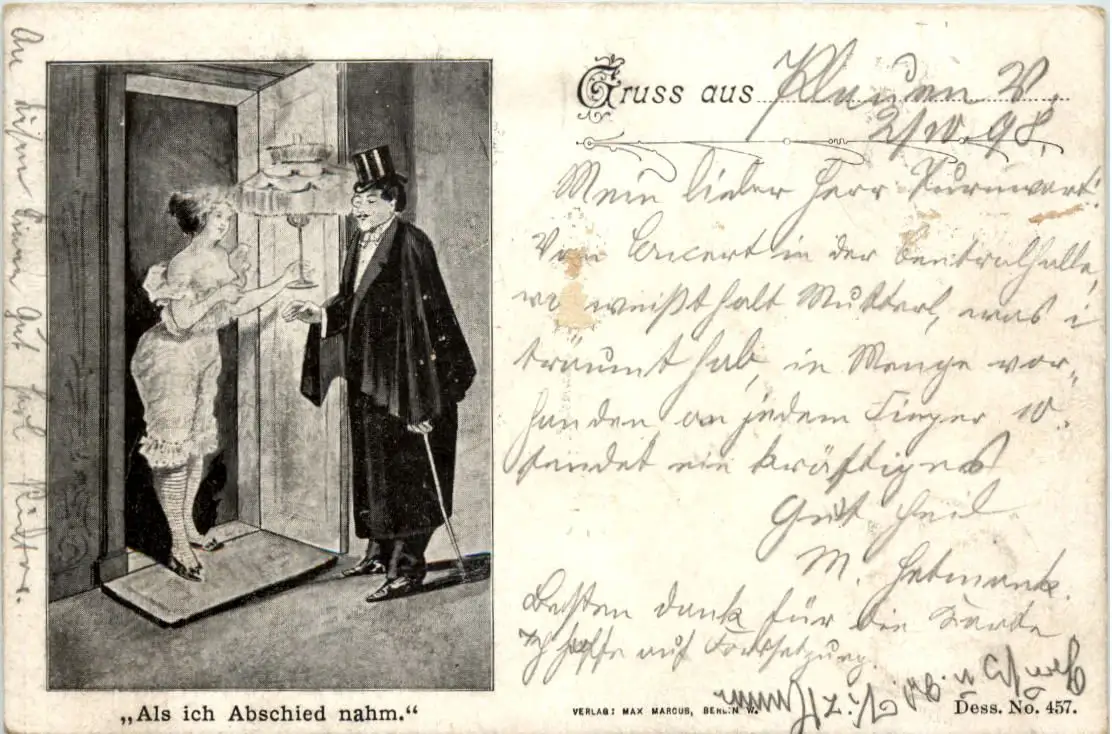 Gruss aus Plauen V.
2/10. 98.
Mein lieber Herr Turnwart!
Vom Concert in der Centralhalle,
wo weißt halt Mutterl, was i
träumt hab, in Menge vor-
handen an jedem Finger 10.
sendet ein kräftiges
Gut Heil
M. Hetmank.
Besten Dank für die Karte
Ich hoffe auf Fortsetzung.
Gut Heil
„Als ich Abschied nahm.“
VERLAG: MAX MARCUS, BERLIN W.
Dess. No. 457.